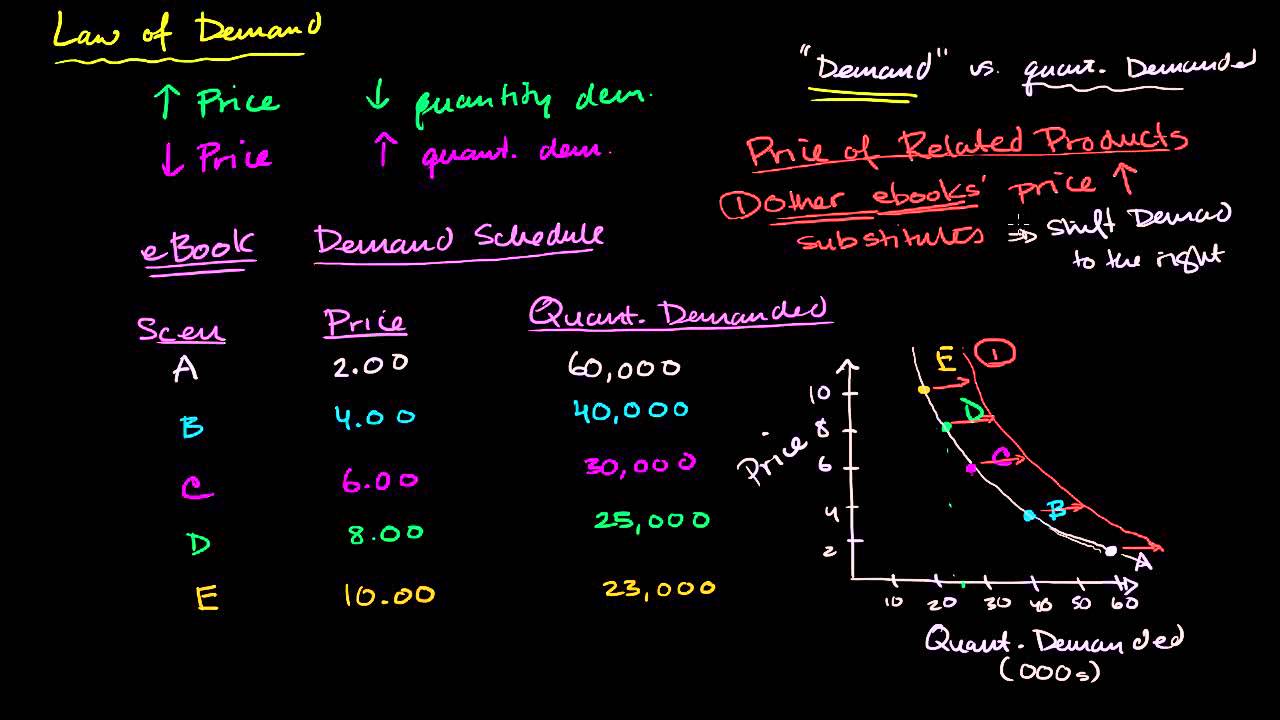 Law of Demand
↑ Price ↓ quantity dem.
↓ Price ↑ quant. dem.
"Demand" vs. quant. Demanded
Price of Related Products
① other ebooks' price ↑
substitutes ⇒ shift Demand
to the right
eBook Demand Schedule
Scen Price Quant. Demanded
A 2.00 60,000
B 4.00 40,000
C 6.00 30,000
D 8.00 25,000
E 10.00 23,000
E ①
10
D
8
Price
6 C
4 B
2
A
10 20 30 40 50 60
Quant. Demanded
(000s)